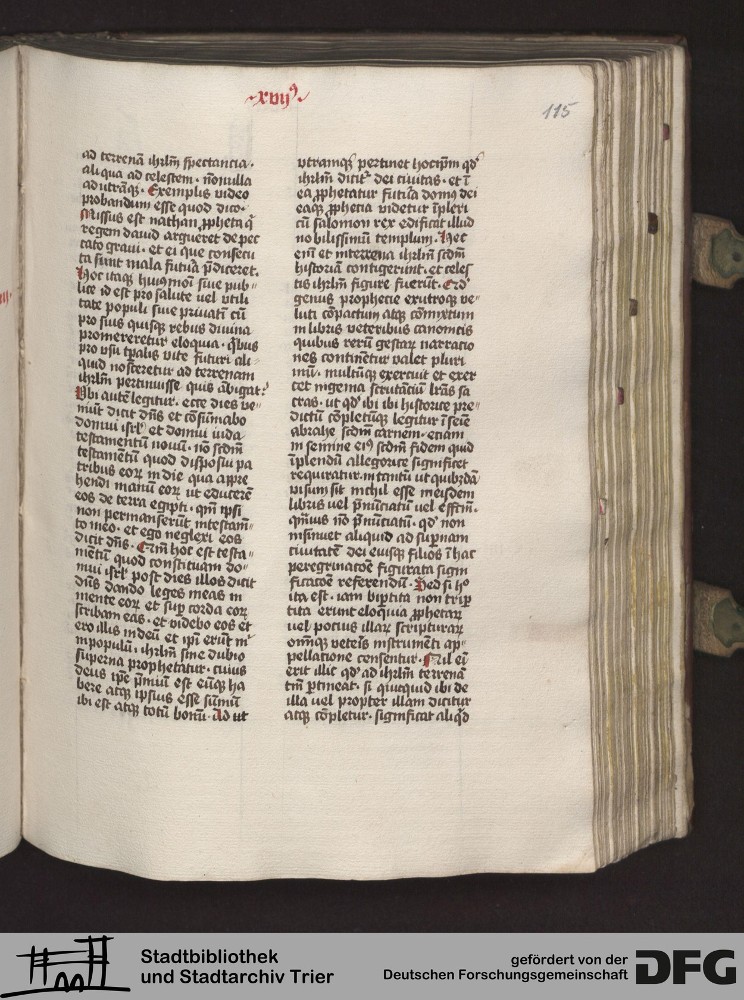 ~xvij⁹~
115
ad terrenā ihrlm̄ spectantia·
aliqua ad celestem· nōnulla
ad utrāqꝫ· Exemplis video
probandum esse quod dico·
Missus est nathan ꝓpheta q̇
regem dauid argueret de pec
cato graui· et ei que consecu
ta sunt mala futura p̄diceret·
Hec itaqꝫ huiꝰmōi siue pub〃
lice id est pro salute uel utili
tate populi siue priuatī cū
pro suis quisqꝫ rebus diuina
promereretur eloquia· qͥbus
pro usu tp̄alis vite futuri ali〃
quid nosceretur ad terrenam
ihrlm̄ pertinuisse quis ābigat?
Vbi autē legitur· ecce dies ve〃
niūt dicit dn̄s et cōsūmabo
domui isrl̄ et domui iuda
testamentū nouū· nō scdm̄
testamētū quod disposui pa
tribus eoꝝ in die qua appre
hendi manū eoꝝ ut educerē
eos de terra egipti· qm̄ ipsi
non permanserūt in testam̄〃
to meo· et ego neglexi eos
dicit dn̄s· Cum hoc est testa〃
mētū quod constituam do〃
mui isrl̄ post dies illos dicit
dn̄s dando leges meas in
mente eoꝝ et suꝑ corda eoꝝ
scribam eas· et videbo eos et
ero illis in deū et ip̄i erūt m̄
in populū· ihrlm̄ sine dubio
superna prophetatur· cuius
deus ip̄e p̄miū est eūqꝫ ha
bere atqꝫ ipsius esse sūmū
ibi est atqꝫ totū bonū· Ad ut
utramqꝫ pertinet hoc ip̄m qd̓
ihrlm̄ dicit᷑ dei ciuitas· et ī
ea ꝓphetatur futura domꝰ dei
eaqꝫ ꝓphecia videtur īpleri
cū salomon rex edificat illud
nobilissimū templum· Hec
eni᷑ et in terrena ihrlm̄ scdm̄
historiā contigerunt· et celes
tis ihrlm̄ figure fuerūt· Qd̓
genus prophecie ex utroqꝫ ve〃
luti cōpactum atqꝫ cōmixtum
in libris veteribus canonicis
quibus rerū gestaꝝ narracio
nes continētur valet pluri
mū· multūqꝫ exercuit et exer
cet ingenia scrutanciū lr̄as sa
cras· ut qd̓ ibi ibi historice pre〃
dictū cōpletūqꝫ legitur ī seīe
abrahe scdm̄ carnem· etiam
in semine eiꝰ scdm̄ fidem quid
īplendū allegorice significet
requiratur· in tantū ut quibꝰdā
visum sit nichil esse in eisdem
libris vel p̄nūciatū vel eff̄cm̄·
qm̄uis nō p̄nūciatū· qd̓ non
insinuet aliquid ad supnam
ciuitatē dei eiusqꝫ filios ī hac
peregrinacōe figurata signi
ficacōe referendū· Sed si hͦ
ita est· iam biꝑtita non triꝑ
tita erunt eloquia ꝓphetaꝝ
uel pocius illaꝝ scripturaꝝ
omniqꝫ veteris instrumēti ap〃
pellatione consentur· Nil ei᷑
erit illic qd̓ ad ihrlm̄ terrenā
tm̄ ꝑtineat· si quicquid ibi de
illa uel propter illam dicitur
atqꝫ cōpletur· significat aliqd̓
Stadtbibliothek
und Stadtarchiv Trier
gefördert von der
Deutschen Forschungsgemeinschaft
DFG